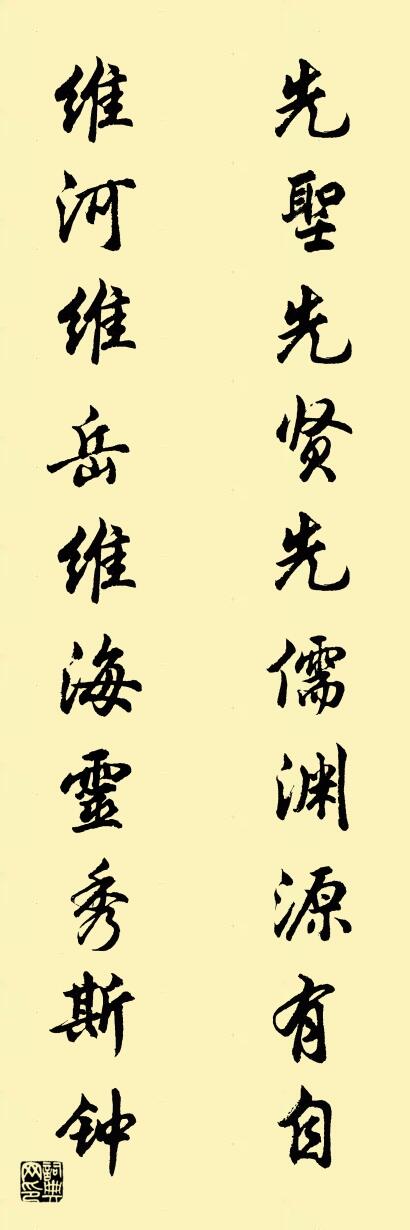 先聖先贤先儒渊源有自
维河维岳维海靈秀斯钟
詞典网印